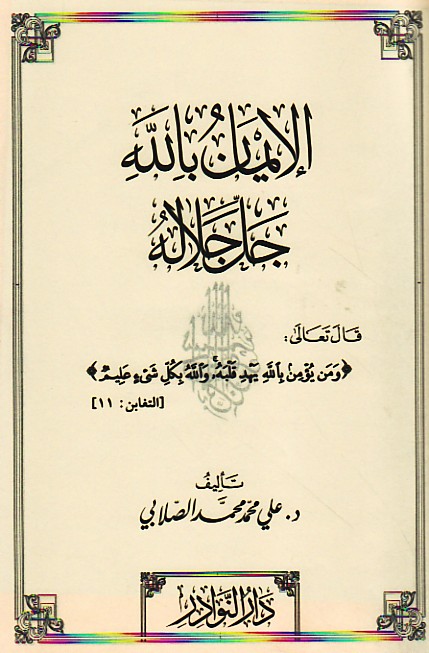 الإيمَانُ بِاللَّهِ
جَلَّ جَلَالُهُ
قَالَ تَعَالَىٰ:
﴿وَمَن يُؤْمِنۢ بِٱللَّهِ يَهْدِ قَلْبَهُۥۚ وَٱللَّهُ بِكُلِّ شَىْءٍ عَلِيمٌ﴾
[التغابن: ١١]
تَأليفُ
د. علي محمّد محمَّد الصّلابي
دَارُ النَّوَادِرِ